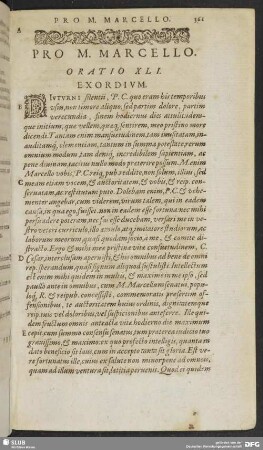 PRO M. MARCELLO.
PRO M. MARCELLO.
ORATIO XLI.
EXORDIVM.
DIVTVRNI silentii, P.C. quo eram his temporibus
vsus, non timore aliquo, sed partim dolore, partim
verecundia, finem hodiernus dies attulit: idem-
que initium, quæ vellem, quæq; sentirem, meo pristino more
dicendi. Tantam enim mansuetudinem, tam inusitatam, in-
auditamq; clementiam, tantum in summa potestate, rerum
omnium modum, tam deniq; incredibilem sapientiam, ac
pene diuinam, tacitus nullo modo præterire possum. M. enim
Marcello vobis, P.C. reiq; pub. reddito, non solum, illius, sed
meam etiam vocem, & auctoritatem, & vobis, & reip. con-
seruatam, ac restitutam puto. Dolebam enim, P.C. & vehe-
menter angebar, cum viderem, virum talem, qui in eadem
causa, in qua ego, fuisset, non in eadem esse fortuna: nec mihi
persuadere poteram, nec fas esse ducebam, versari me in ve-
stro veteri curriculo, illo æmulo, atq; imitatore studiorum, ac
laborum meorum quasi quodam socio, a me, & comite di-
stracto. Ergo & mihi meæ pristinæ vitæ consuetudinem, C.
Cæsar, interclusam aperuisti, & his omnibus ad bene de omni
rep. sperandum, quasi signum aliquod sustulisti. Intellectum
est enim mihi quidem in multis, & maxime in me ipso, sed
paullo ante in omnibus, cum M. Marcellum senatui, popu-
loq; R. & reipub. concessisti, commemoratis præsertim of-
fensionibus, te auctoritatem huius ordinis, dignitatemque
reip. tuis vel doloribus, vel suspicionibus anteferre. Ille qui-
dem fructum omnis anteactæ vitæ hodierno die maximum
cepit, cum summo consensu senatus, tum præterea iudicio tuo
grauissimo, & maximo. ex quo profecto intelligis, quanta in
dato beneficio sit laus, cum in accepto tanta sit gloria. Est ve-
ro fortunatus ille, cuius ex salute non minor pæne ad omneis,
quam ad illum ventura sit, lætitia peruenit. Quod ei quidem